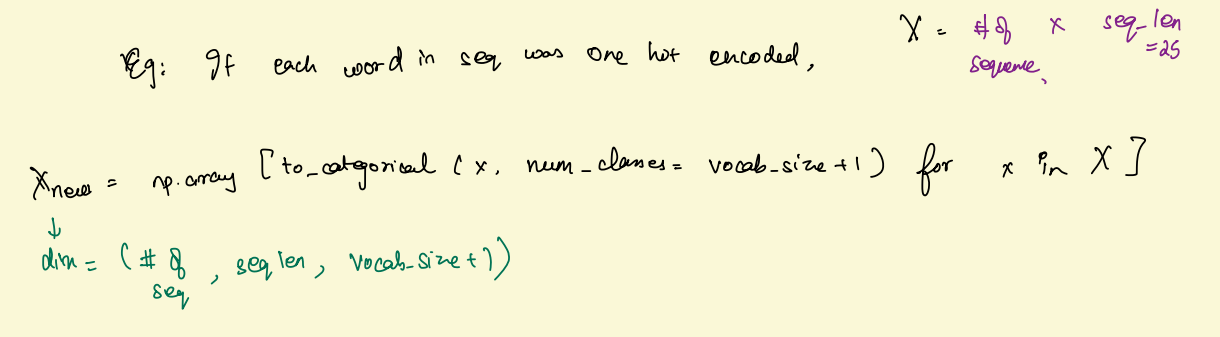 Eg: If each word in seq was one hot encoded,
X = # of sequence, x seq_len = 25
Xnew = np.array [to_categorical (x, num_classes = vocab_size +1) for x in X]
↓
dim = (# of seq, seq len, vocab_size +1)